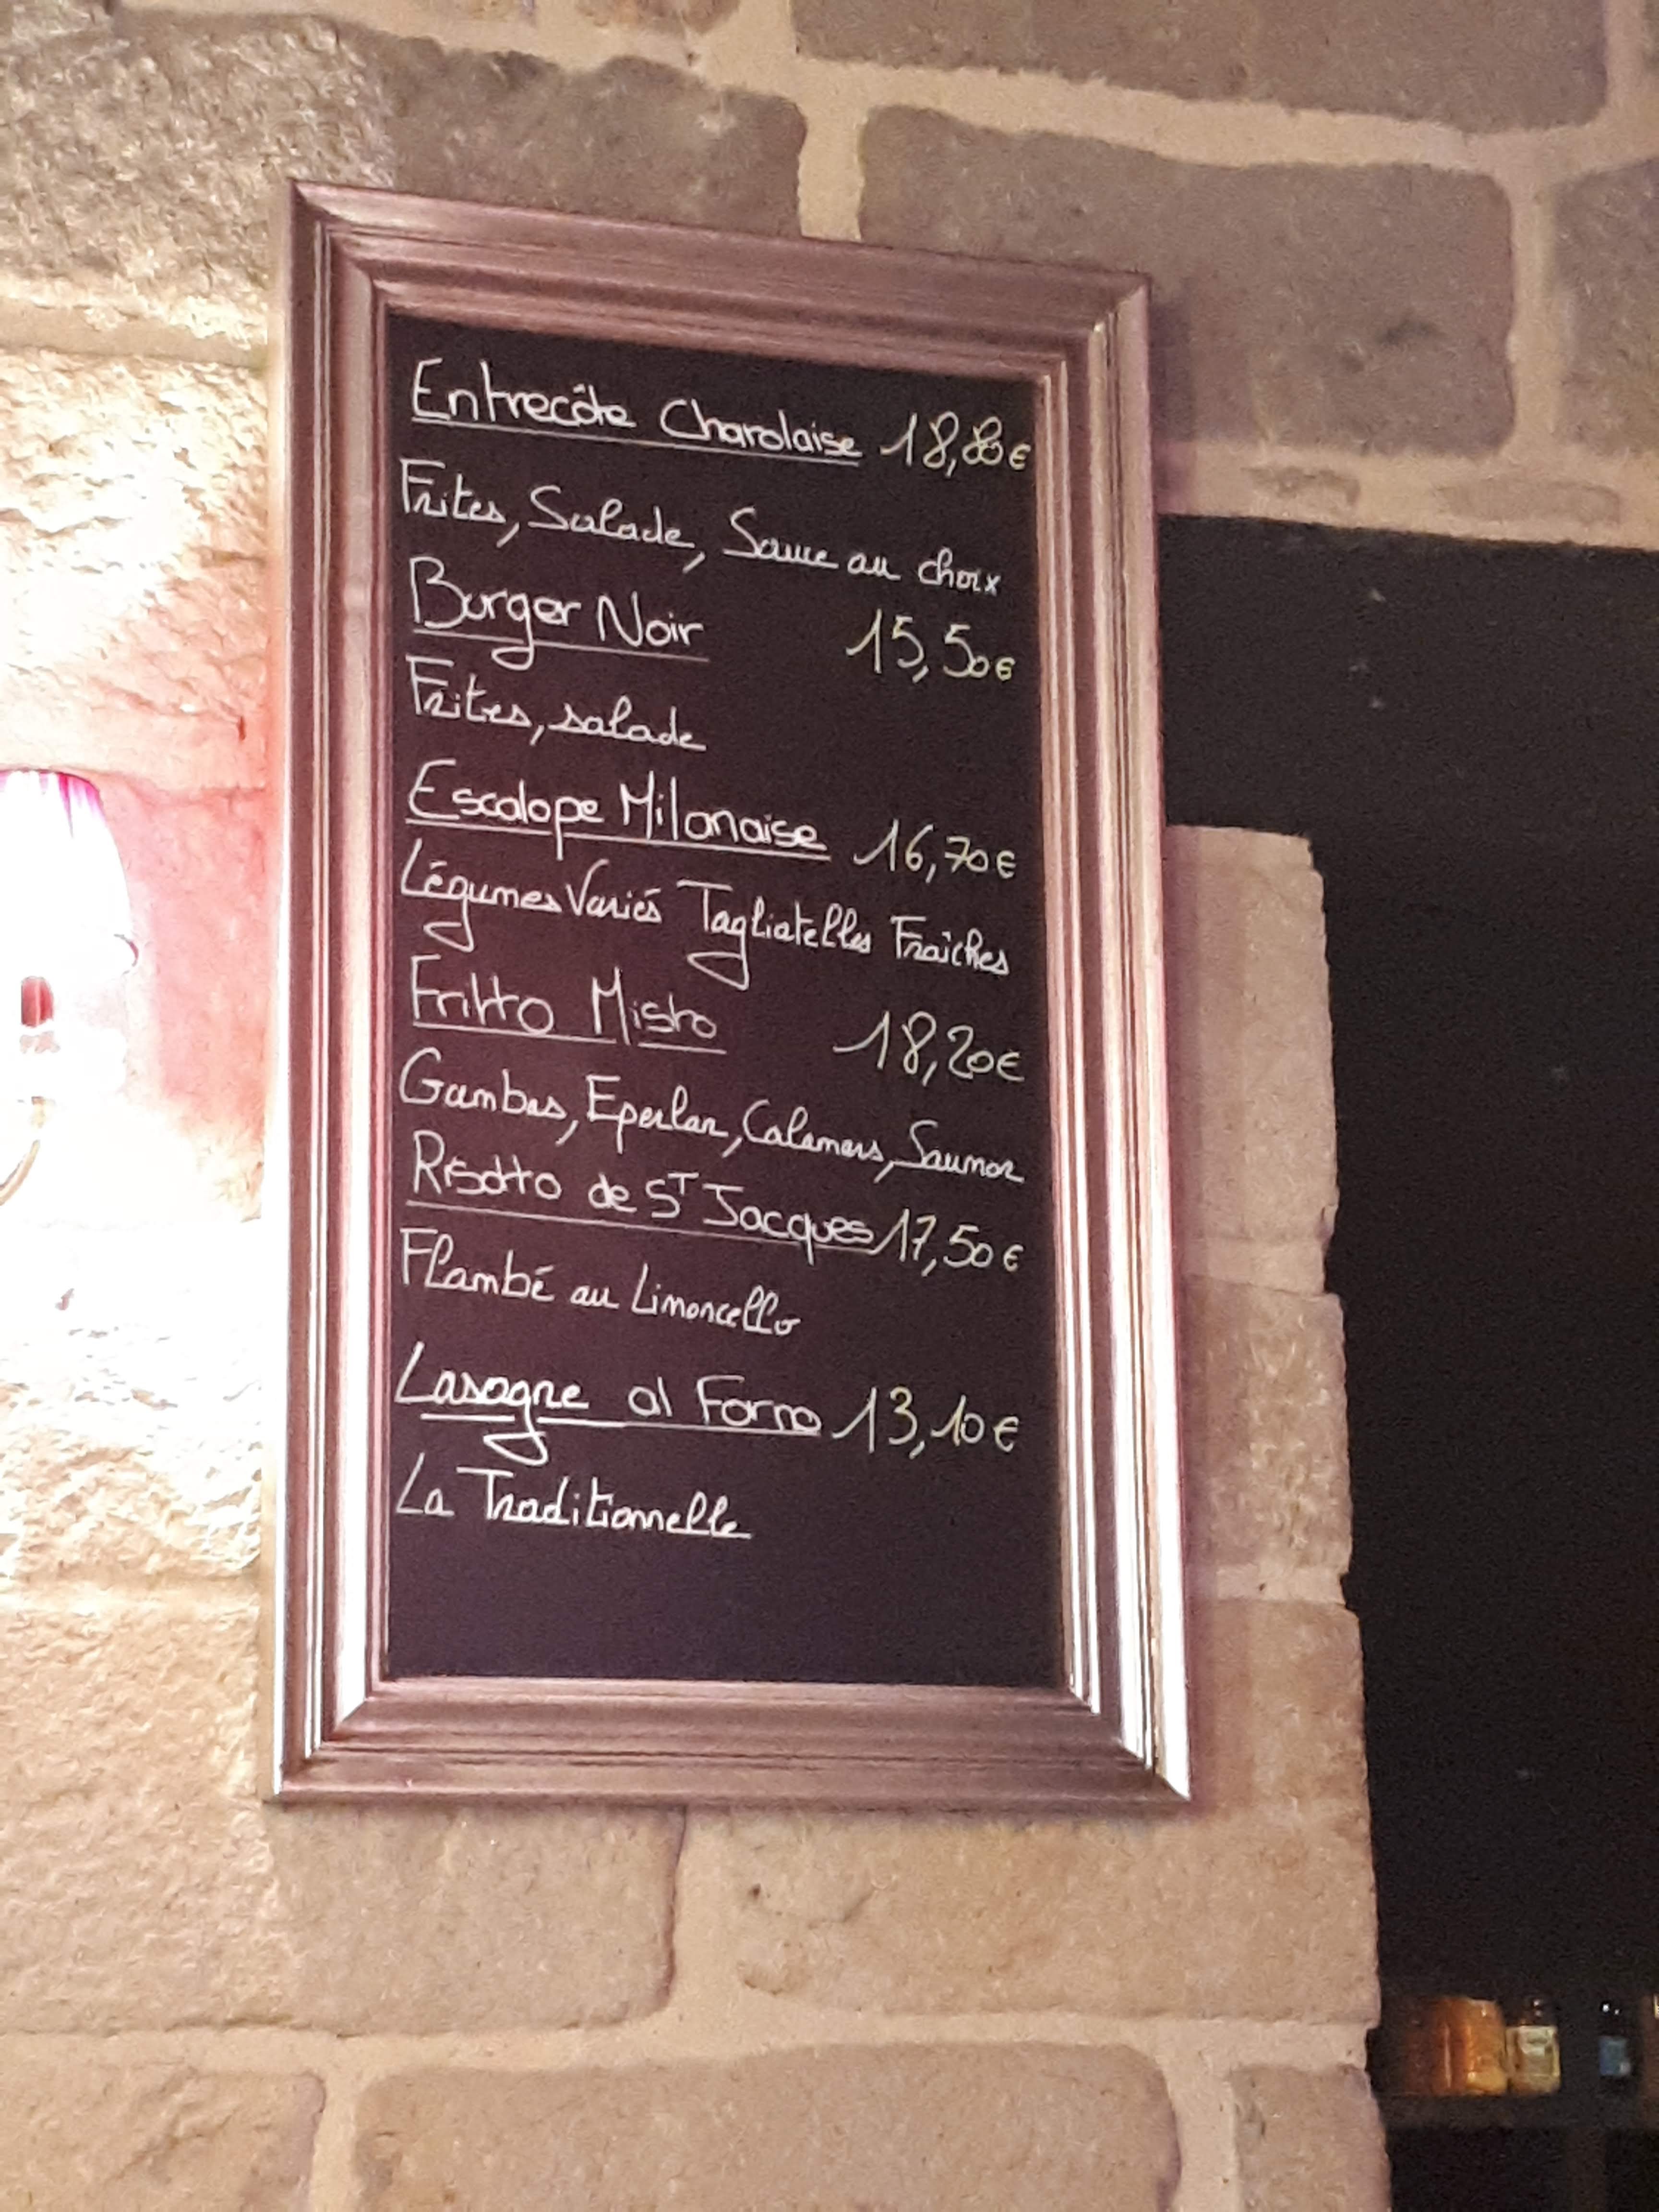 Entrecôte Charolaise 18,80€
Frites, Salade, Sauce au choix
Burger Noir 15,50€
Frites, salade
Escalope Milanaise 16,70€
Légumes Variés Tagliatelles Fraîches
Fritto Misto 18,20€
Gambas, Eperlan, Calamars, Saumon
Risotto de ST Jacques 17,50€
Flambé au Limoncello
Lasagne al Forno 13,10€
La Traditionnelle